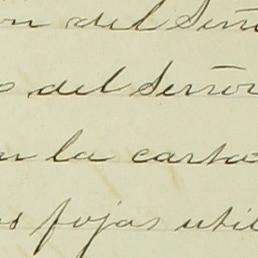 del Señ
del Señor
la carta
fojas util